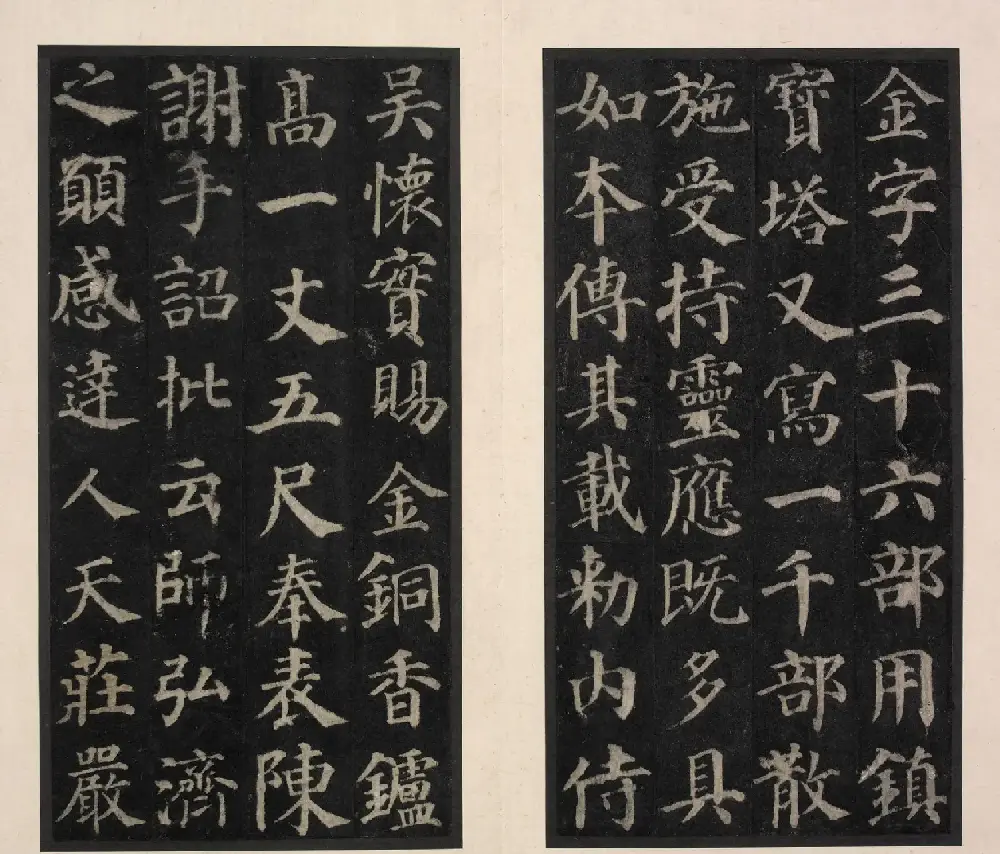 金字三十六部用鎮
寶塔又寫一千部散
施受持靈應既多具
如本傳其載勅內侍
吴懷實賜金銅香鑪
髙一丈五尺奉表陳
謝手詔批云師弘濟
之願感達人天莊嚴